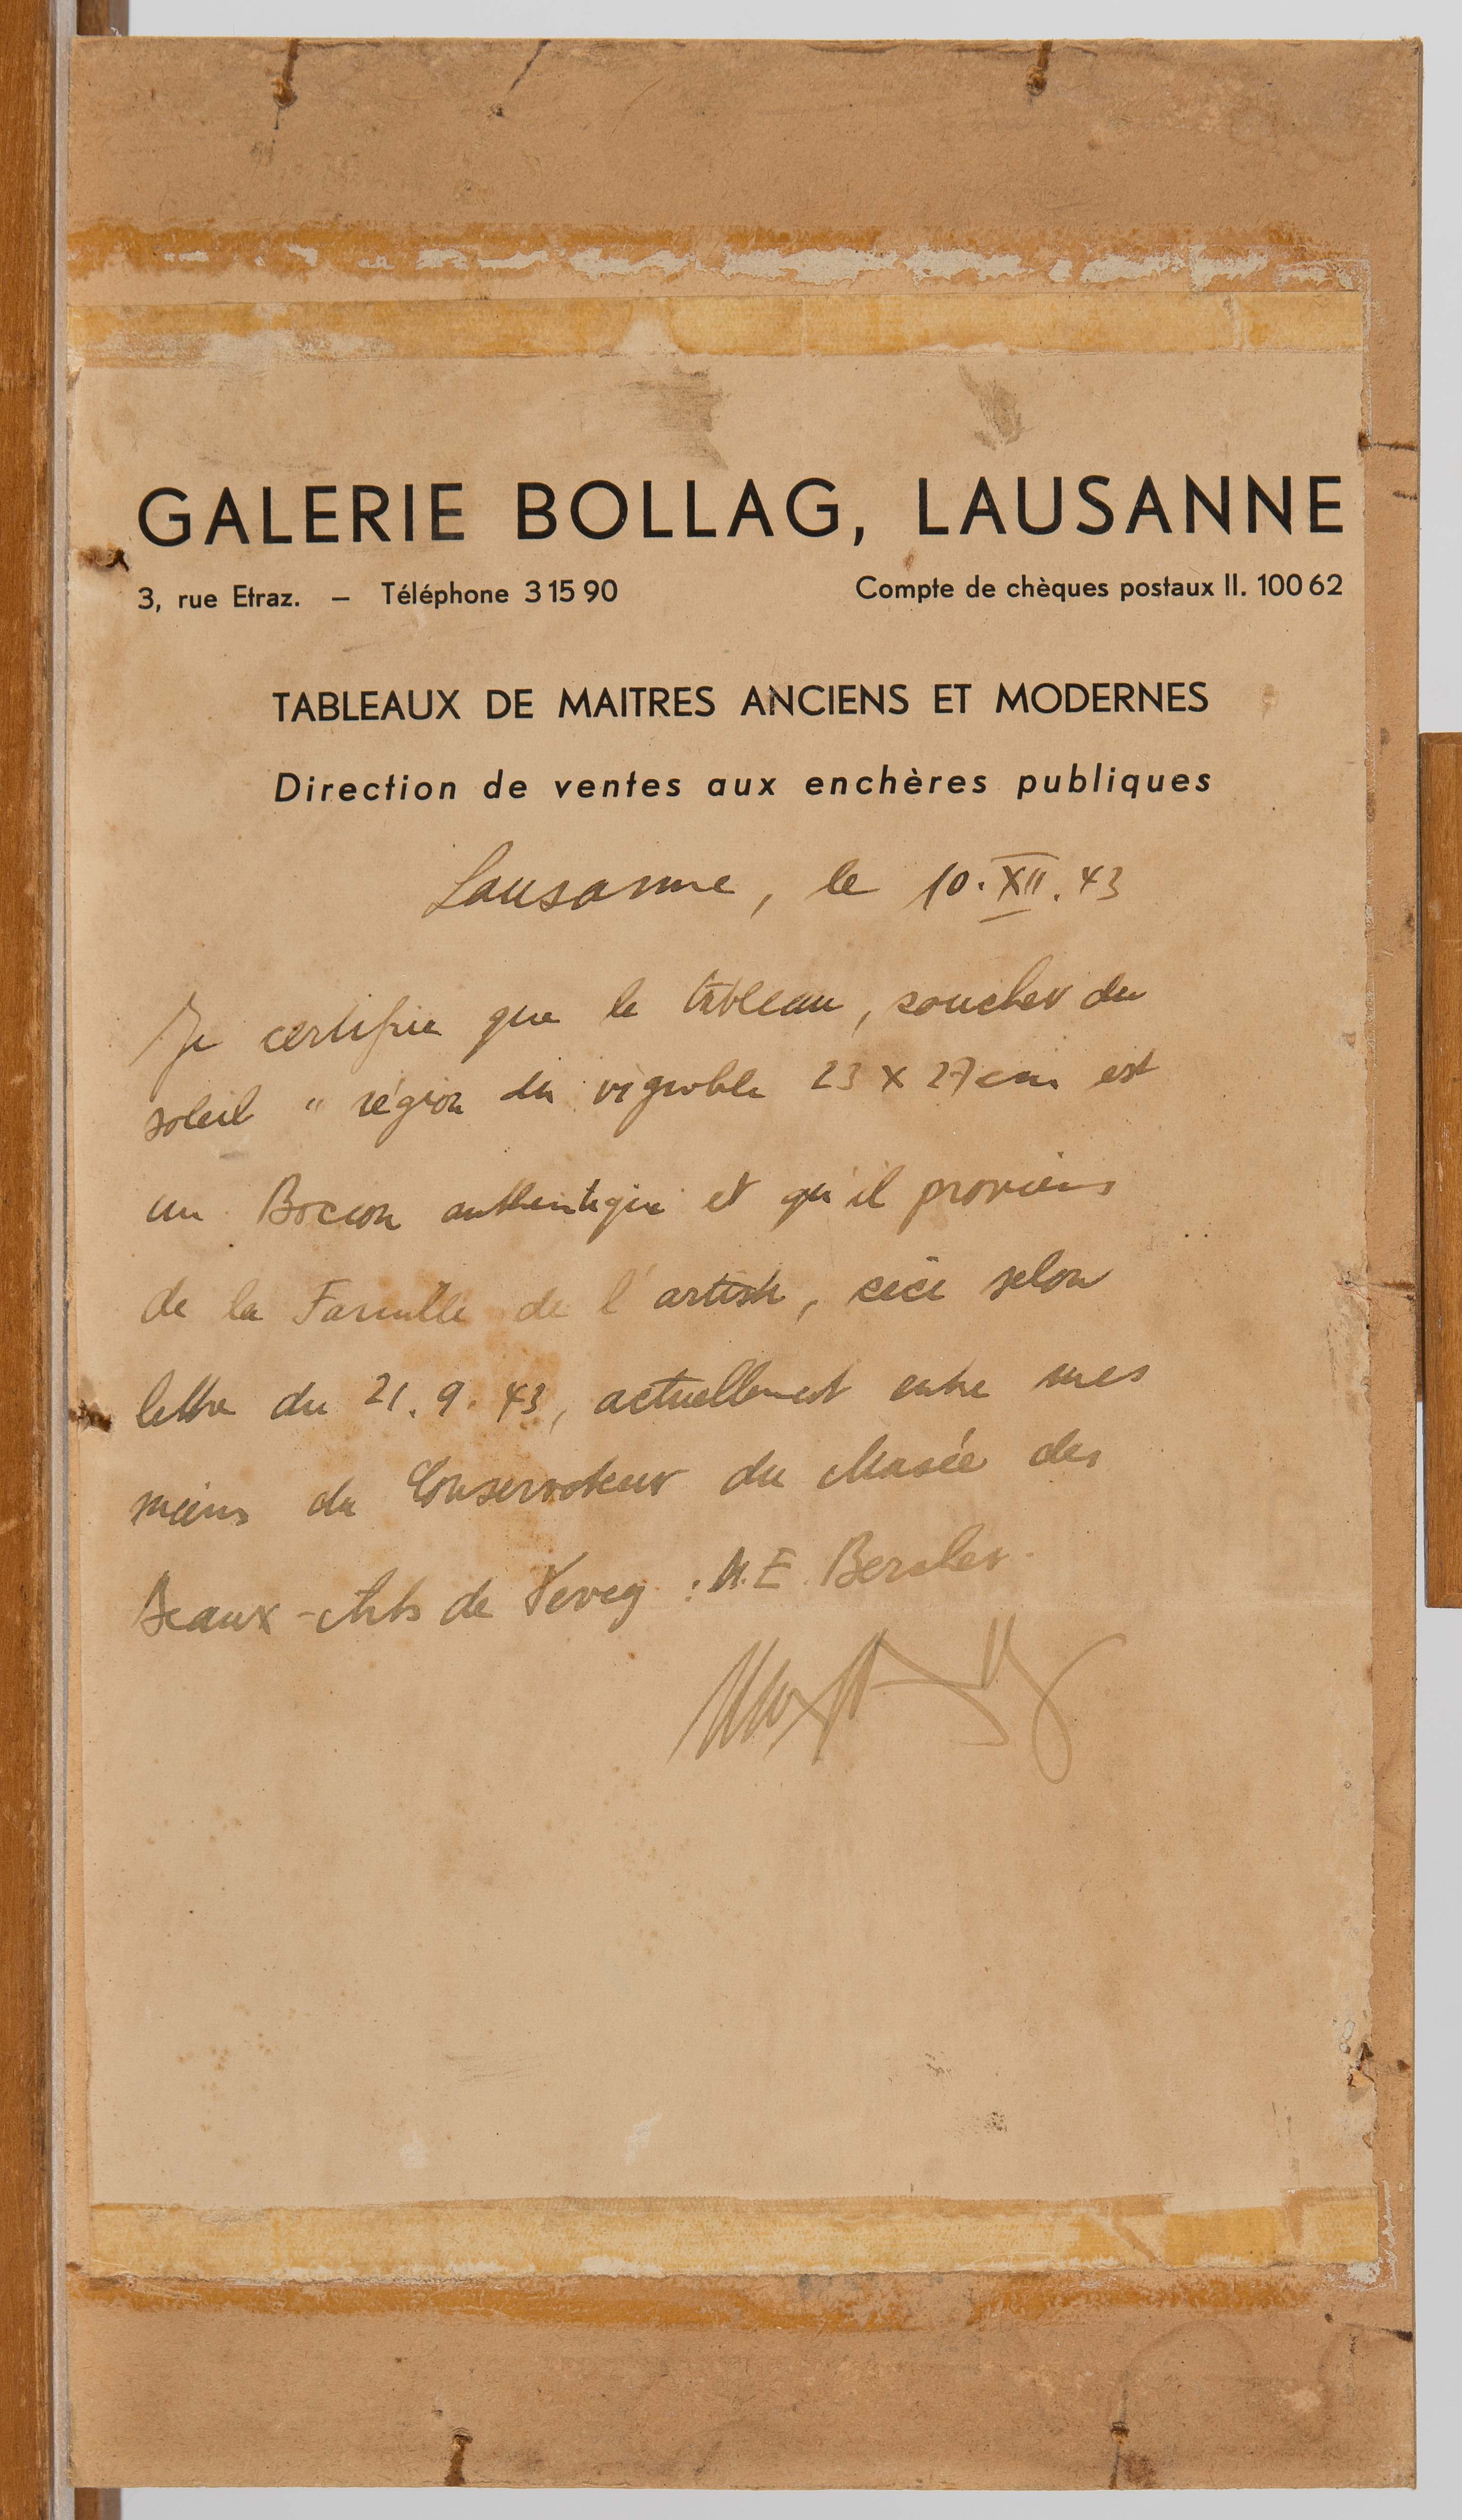 GALERIE BOLLAG, LAUSANNE
3, rue Etraz. — Téléphone 3 15 90 Compte de chèques postaux II. 100 62
TABLEAUX DE MAITRES ANCIENS ET MODERNES
Direction de ventes aux enchères publiques
Lausanne, le 10. XII. 43
Je certifie que le tableau, coucher du
soleil " région du vignoble 23 X 27 cm est
un Bocion authentique et qu'il proviens
de la Famille de l'artiste, ceci selon
lettre du 21. 9. 43, actuellement entre mes
mains du Conservateur du Musée des
Beaux-Arts de Vevey : M. E.